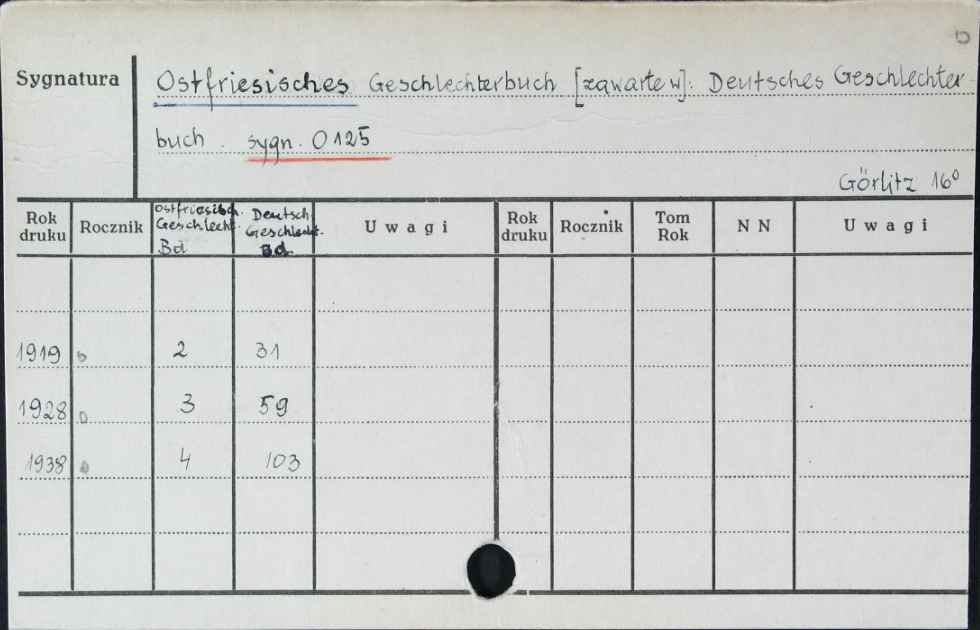 Sygnatura
Ostfriesisches Geschlechterbuch [zawarte w]: Deutsches Geschlechter-
buch. sygn. O 125
Görlitz 16°
Rok druku Rocznik Ostfriesisch. Geschlecht. Bd. Deutsch. Geschlecht. Bd. Uwagi Rok druku Rocznik Tom Rok NN Uwagi
1919 2 31
1928 3 59
1938 4 103